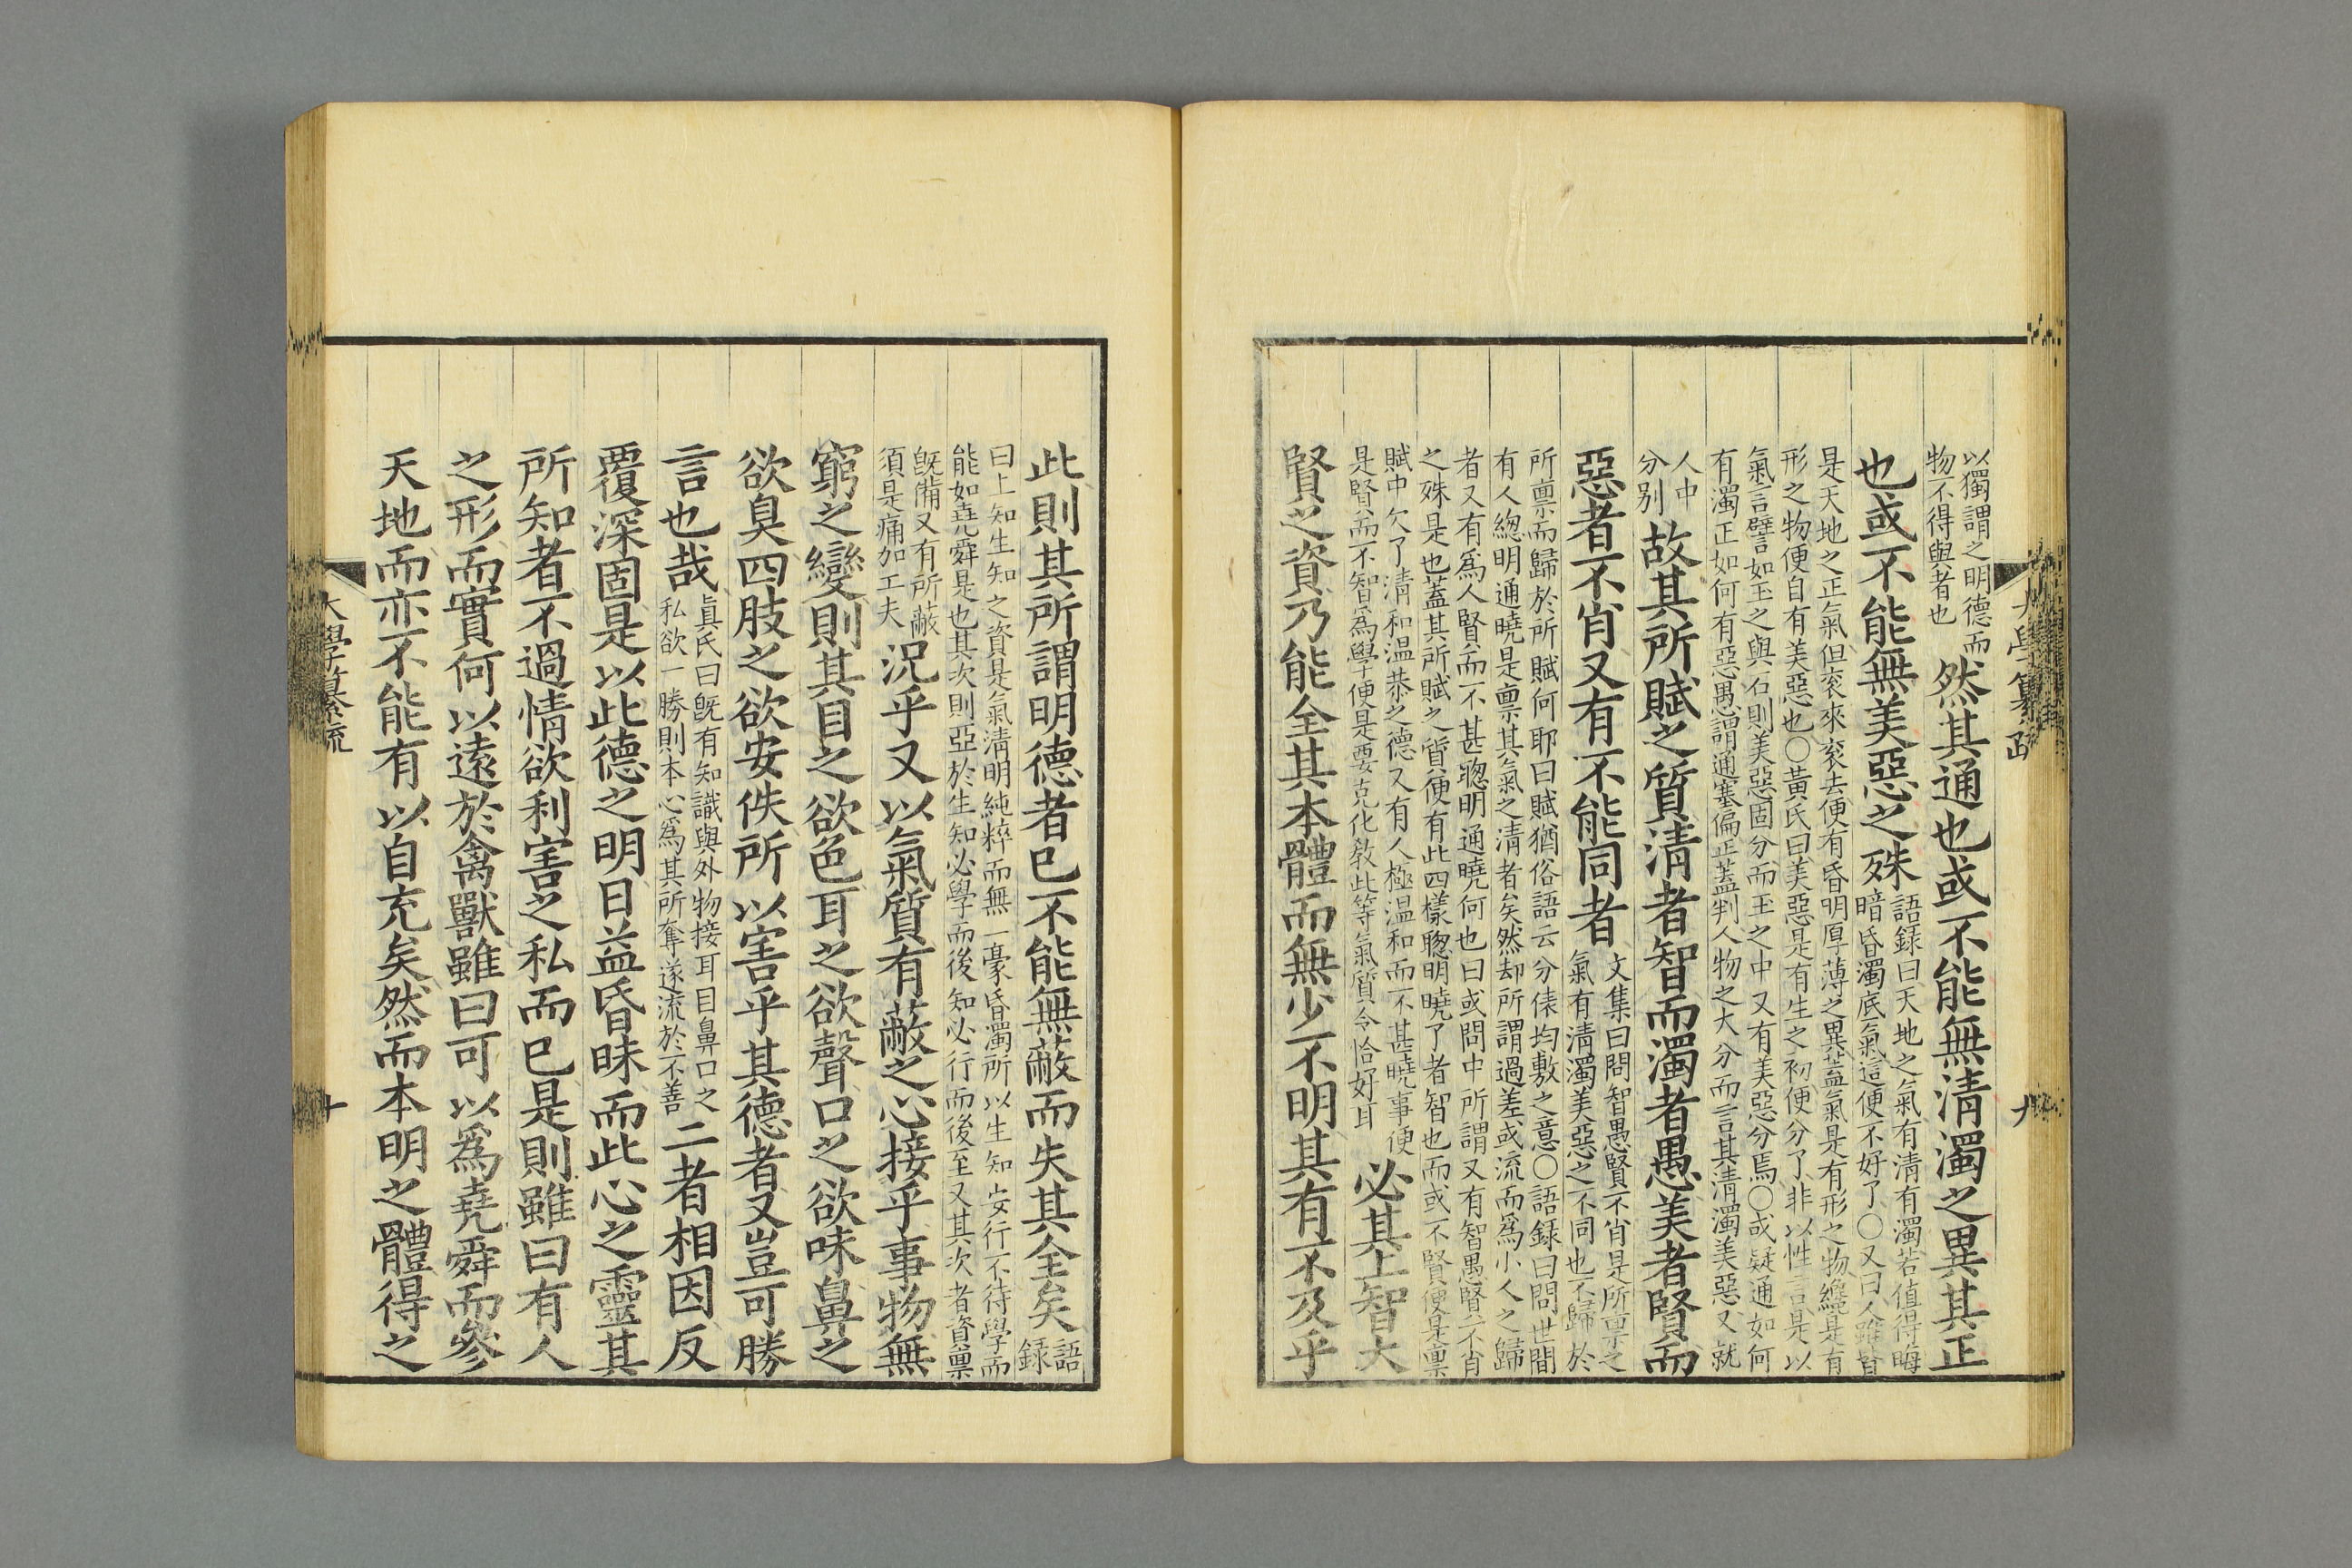 以獨謂之明德而
物不得與者也
然其通也或不能無清濁之異其正
也或不能無美惡之殊
語録曰天地之氣有清有濁若值得晦
暗昏濁底氣這便不好了〇又曰人雖皆
是天地之正氣但衮來衮去便有昏明厚薄之異蓋氣是有形之物纔是有
形之物便自有美惡也〇黃氏曰美惡是有生之初便分了非以性言是以
氣言譬如玉之與石則美惡固分而玉之中又有美惡分焉〇或疑通如何
有濁正如何有惡愚謂通塞偏正蓋判人物之大分而言其清濁美惡又就
人中
分别
故其所賦之質清者智而濁者愚美者賢而
惡者不肖又有不能同者
文集曰問智愚賢不肖是所禀之
氣有清濁美惡之不同也不歸於
所禀而歸於所賦何耶曰賦猶俗語云分俵均敷之意〇語録曰問世間
有人緫明通曉是禀其氣之清者矣然却所謂過差或流而爲小人之歸
者又有爲人賢而不甚聦明通曉何也曰或問中所謂又有智愚賢不肖
之殊是也蓋其所賦之質便有此四樣聦明曉了者智也而或不賢便是禀
賦中欠了清和温恭之德又有人極温和而不甚曉事便
是賢而不智爲學便是要克化敎此等氣質令恰好耳
必其上智大
賢之資乃能全其本體而無少不明其有不及乎
大學纂疏
九
此則其所謂明德者已不能無蔽而失其全矣
語
録
曰上知生知之資是氣清明純粹而無一豪昏濁所以生知安行不待學而
能如堯舜是也其次則亞於生知必學而後知必行而後至又其次者資禀
旣備又有所蔽
須是痛加工夫
況乎又以氣質有蔽之心接乎事物無
窮之變則其目之欲色耳之欲聲口之欲味鼻之
欲臭四肢之欲安佚所以害乎其德者又豈可勝
言也哉
眞氏曰旣有知識與外物接耳目鼻口之
私欲一勝則本心爲其所奪遂流於不善
二者相因反
覆深固是以此德之明日益昏昧而此心之靈其
所知者不過情欲利害之私而已是則雖曰有人
之形而實何以遠於禽獸雖曰可以爲堯舜而參
天地而亦不能有以自充矣然而本明之體得之
大學纂疏
十